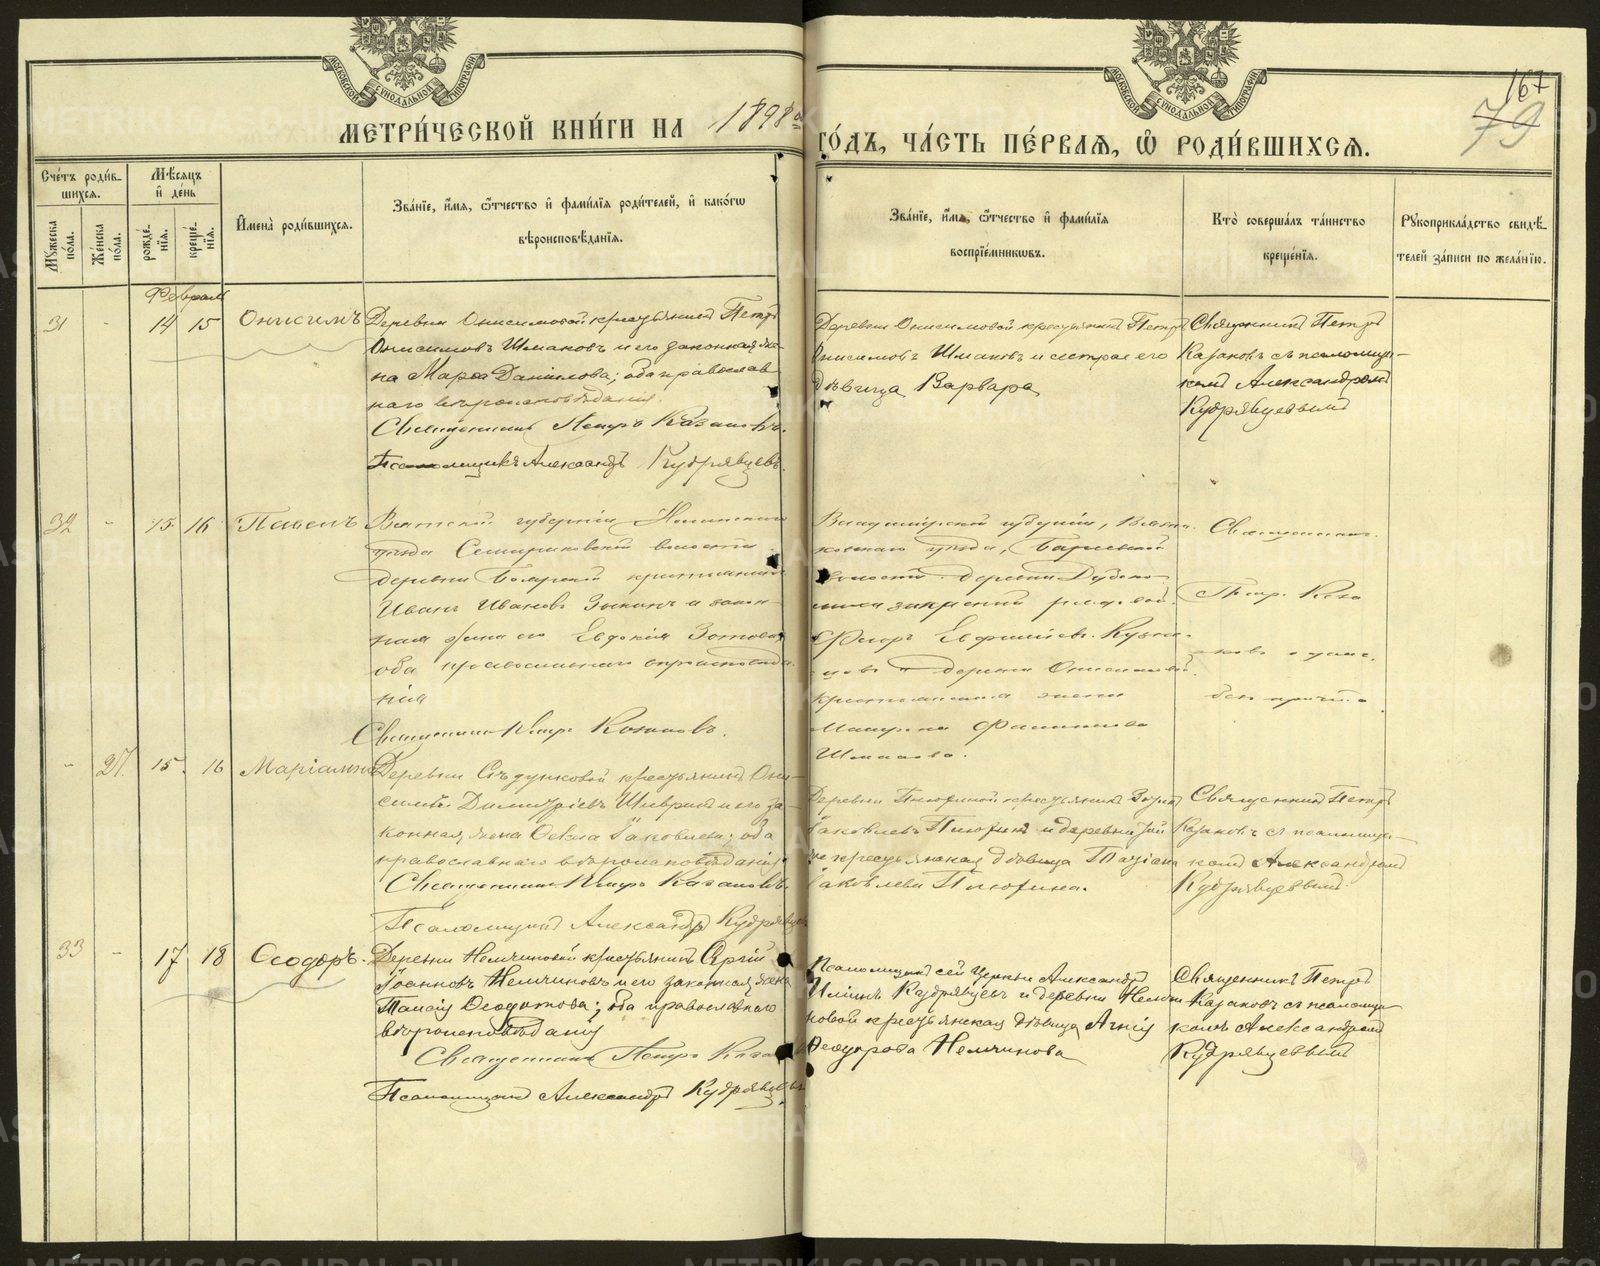 МОСКОВСКОЙ СѴНОДАЛЬНОЙ ТИПОГРАФІИ
МОСКОВСКОЙ СѴНОДАЛЬНОЙ ТИПОГРАФІИ
167
79
МЕТРИ́ЧЕСКОЙ КНИ́ГИ НА 1898 ГО́ДЪ, ЧА́СТЬ ПЕ́РВАЯ, Ѡ҆ РОДИ́ВШИХСЯ.
Сче́тъ роди́в-
шихся.
Мѣсяцъ
и҆ де́нь
Мꙋ́жеска по́ла.
Же́нска по́ла.
рожде́-
нїя.
креще́-
нїя.
И҆мена̀ роди́вшихся.
Зва́нїе, и҆́мя, ѻ҆́тчество и҆ фами́лїя роди́телей, и҆ како́гѡ
вѣроисповѣ́данїя.
Зва́нїе, и҆́мя, ѻ҆́тчество и҆ фами́лїя
воспрїе́мникѡвъ.
Кто̀ соверша́лъ та́инство
креще́нїя.
Рꙋкоприкла́дство свидѣ́-
телей за́писи по жела́нїю.
Февраль
31 - 14 15 Онисимъ
Деревни Онисимовой крестьянинъ Петръ
Онисимовъ Шмаковъ и его законная же-
на Марѳа Данилова; оба православ-
наго вѣроисповѣданія.
Священникъ Петръ Казаковъ.
Псаломщикъ Александръ Кудрявцевъ.
Деревни Онисимовой крестьянинъ Петръ
Онисимовъ Шмаковъ и сестра его
дѣвица Варвара
Священникъ Петръ
Казаковъ съ псаломщи-
комъ Александромъ
Кудрявцевымъ
32 - 15 16 Павелъ
Вятской губерніи
уѣзда волости
деревни крестьянинъ
Иванъ Ивановъ и закон-
ная жена его Евдокія Зотова
оба православнаго вѣроисповѣда-
нія
Священникъ Петръ Казаковъ.
Владимірской губерніи,
уѣзда,
волости деревни
Ефиміевъ
и деревни Онисимовой
крестьянина жена
Шмакова.
Священникъ
Петръ Каза-
ковъ
безъ причта
- 27. 15. 16 Маріамна
Деревни крестьянинъ Они-
симъ Димитріевъ и его за-
конная жена Ѳекла Іаковлева; оба
православнаго вѣроисповѣданія
Священникъ Петръ Казаковъ.
Псаломщикъ Александръ Кудрявцевъ
Деревни крестьянинъ
Іаковлевъ и деревни той
же крестьянская дѣвица Татіана
Іаковлева
Священникъ Петръ
Казаковъ съ псаломщи-
комъ Александромъ
Кудрявцевымъ.
33 - 17 18 Ѳеодоръ.
Деревни Немчиновой крестьянинъ Сергій
Іоанновъ Немчиновъ и его законная жена
Таисія Ѳеодотова; оба православнаго
вѣроисповѣданія
Священникъ Петръ Казаковъ
Псаломщикъ Александръ Кудрявцевъ
Псаломщикъ сей церкви Александръ
Кудрявцевъ и деревни Немчи-
новой крестьянская дѣвица Агнія
Ѳеодорова Немчинова
Священникъ Петръ
Казаковъ съ псаломщи-
комъ Александромъ
Кудрявцевымъ
METRIKI.GASO-URAL.RU